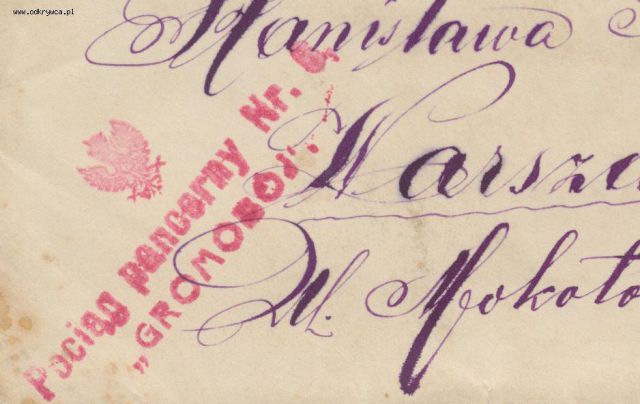 www.odkrywca.pl
Stanisława
Warsza
Ul. Mokoto
Pociąg pancerny Nr.
„GROMOBOJ”.